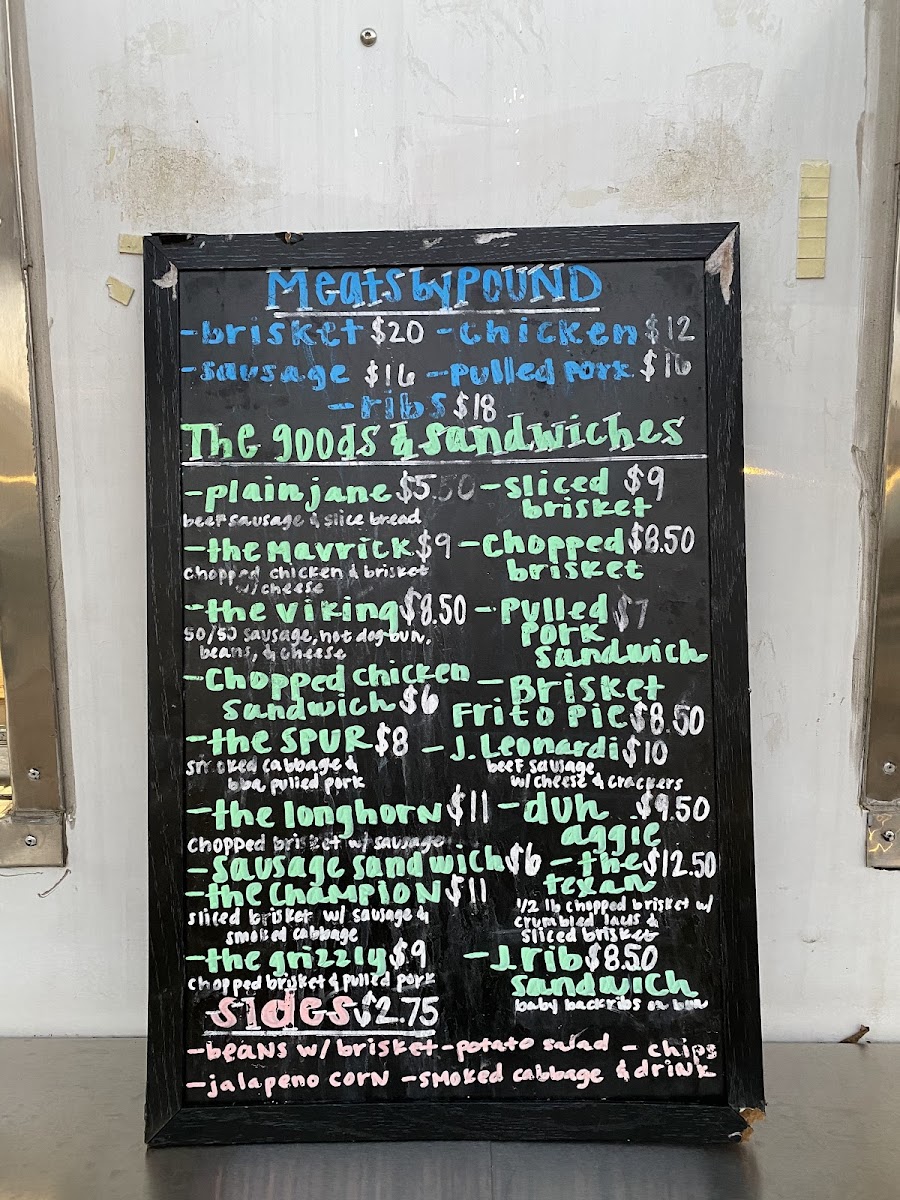 Meats by POUND
-brisket $20 -chicken $12
-sausage $16 -Pulled Pork $16
-ribs $18
The goods & sandwiches
-plain jane $5.50
beef sausage & slice bread
-the Mavrick $9
chopped chicken & brisket
w/ cheese
-the viking $8.50
50/50 sausage, hot dog bun,
beans, & cheese
-Chopped chicken
sandwich $6
-the SPUR $8
smoked cabbage &
bbq pulled pork
-the longhorn $11
chopped brisket w/ sausage
-sausage sandwich $6
-the CHAMPION $11
sliced brisket w/ sausage &
smoked cabbage
-the grizzly $9
chopped brisket & pulled pork
-sliced $9
brisket
-Chopped $8.50
brisket
-Pulled $7
Pork
sandwich
-Brisket
Frito Pie $8.50
-J. Leonardi $10
beef sausage
w/ cheese & crackers
-duh $9.50
aggie
-the $12.50
texan
1/2 lb chopped brisket w/
crumbled &
sliced brisket
-J rib $8.50
sandwich
baby back ribs on bun
sides $2.75
-beans w/ brisket -potato salad -chips
-jalapeno corn -smoked cabbage & drink